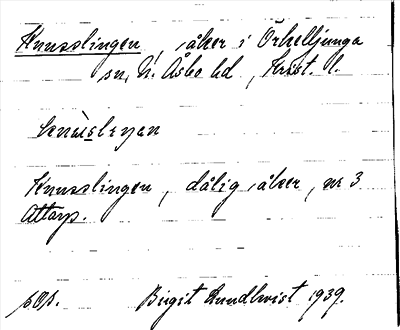 Knusslingen, åker i Örkelljunga
sn, N. Åsbo hd, Krist. l.
Knusslingen, dålig åker, nr 3
Attarp.
Birgit Lundkvist 1939.